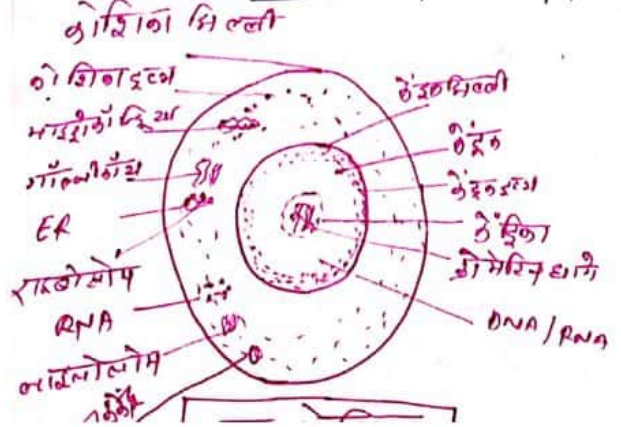 कोशिका झिल्ली
कोशिका द्रव्य
माइटोकॉन्ड्रिया
गॉल्जीकॉय
ER
राइबोसोम
RNA
लाइसोसोम
केंद्रक झिल्ली
केंद्रक
केंद्रक द्रव्य
केंद्रिका
क्रोमेटिन धागे
DNA/RNA